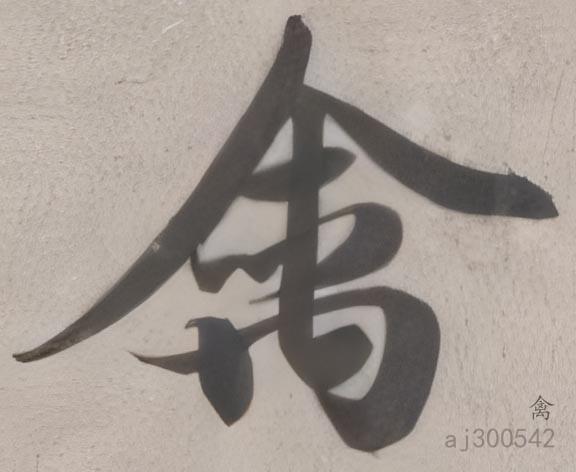 禽
禽
aj300542